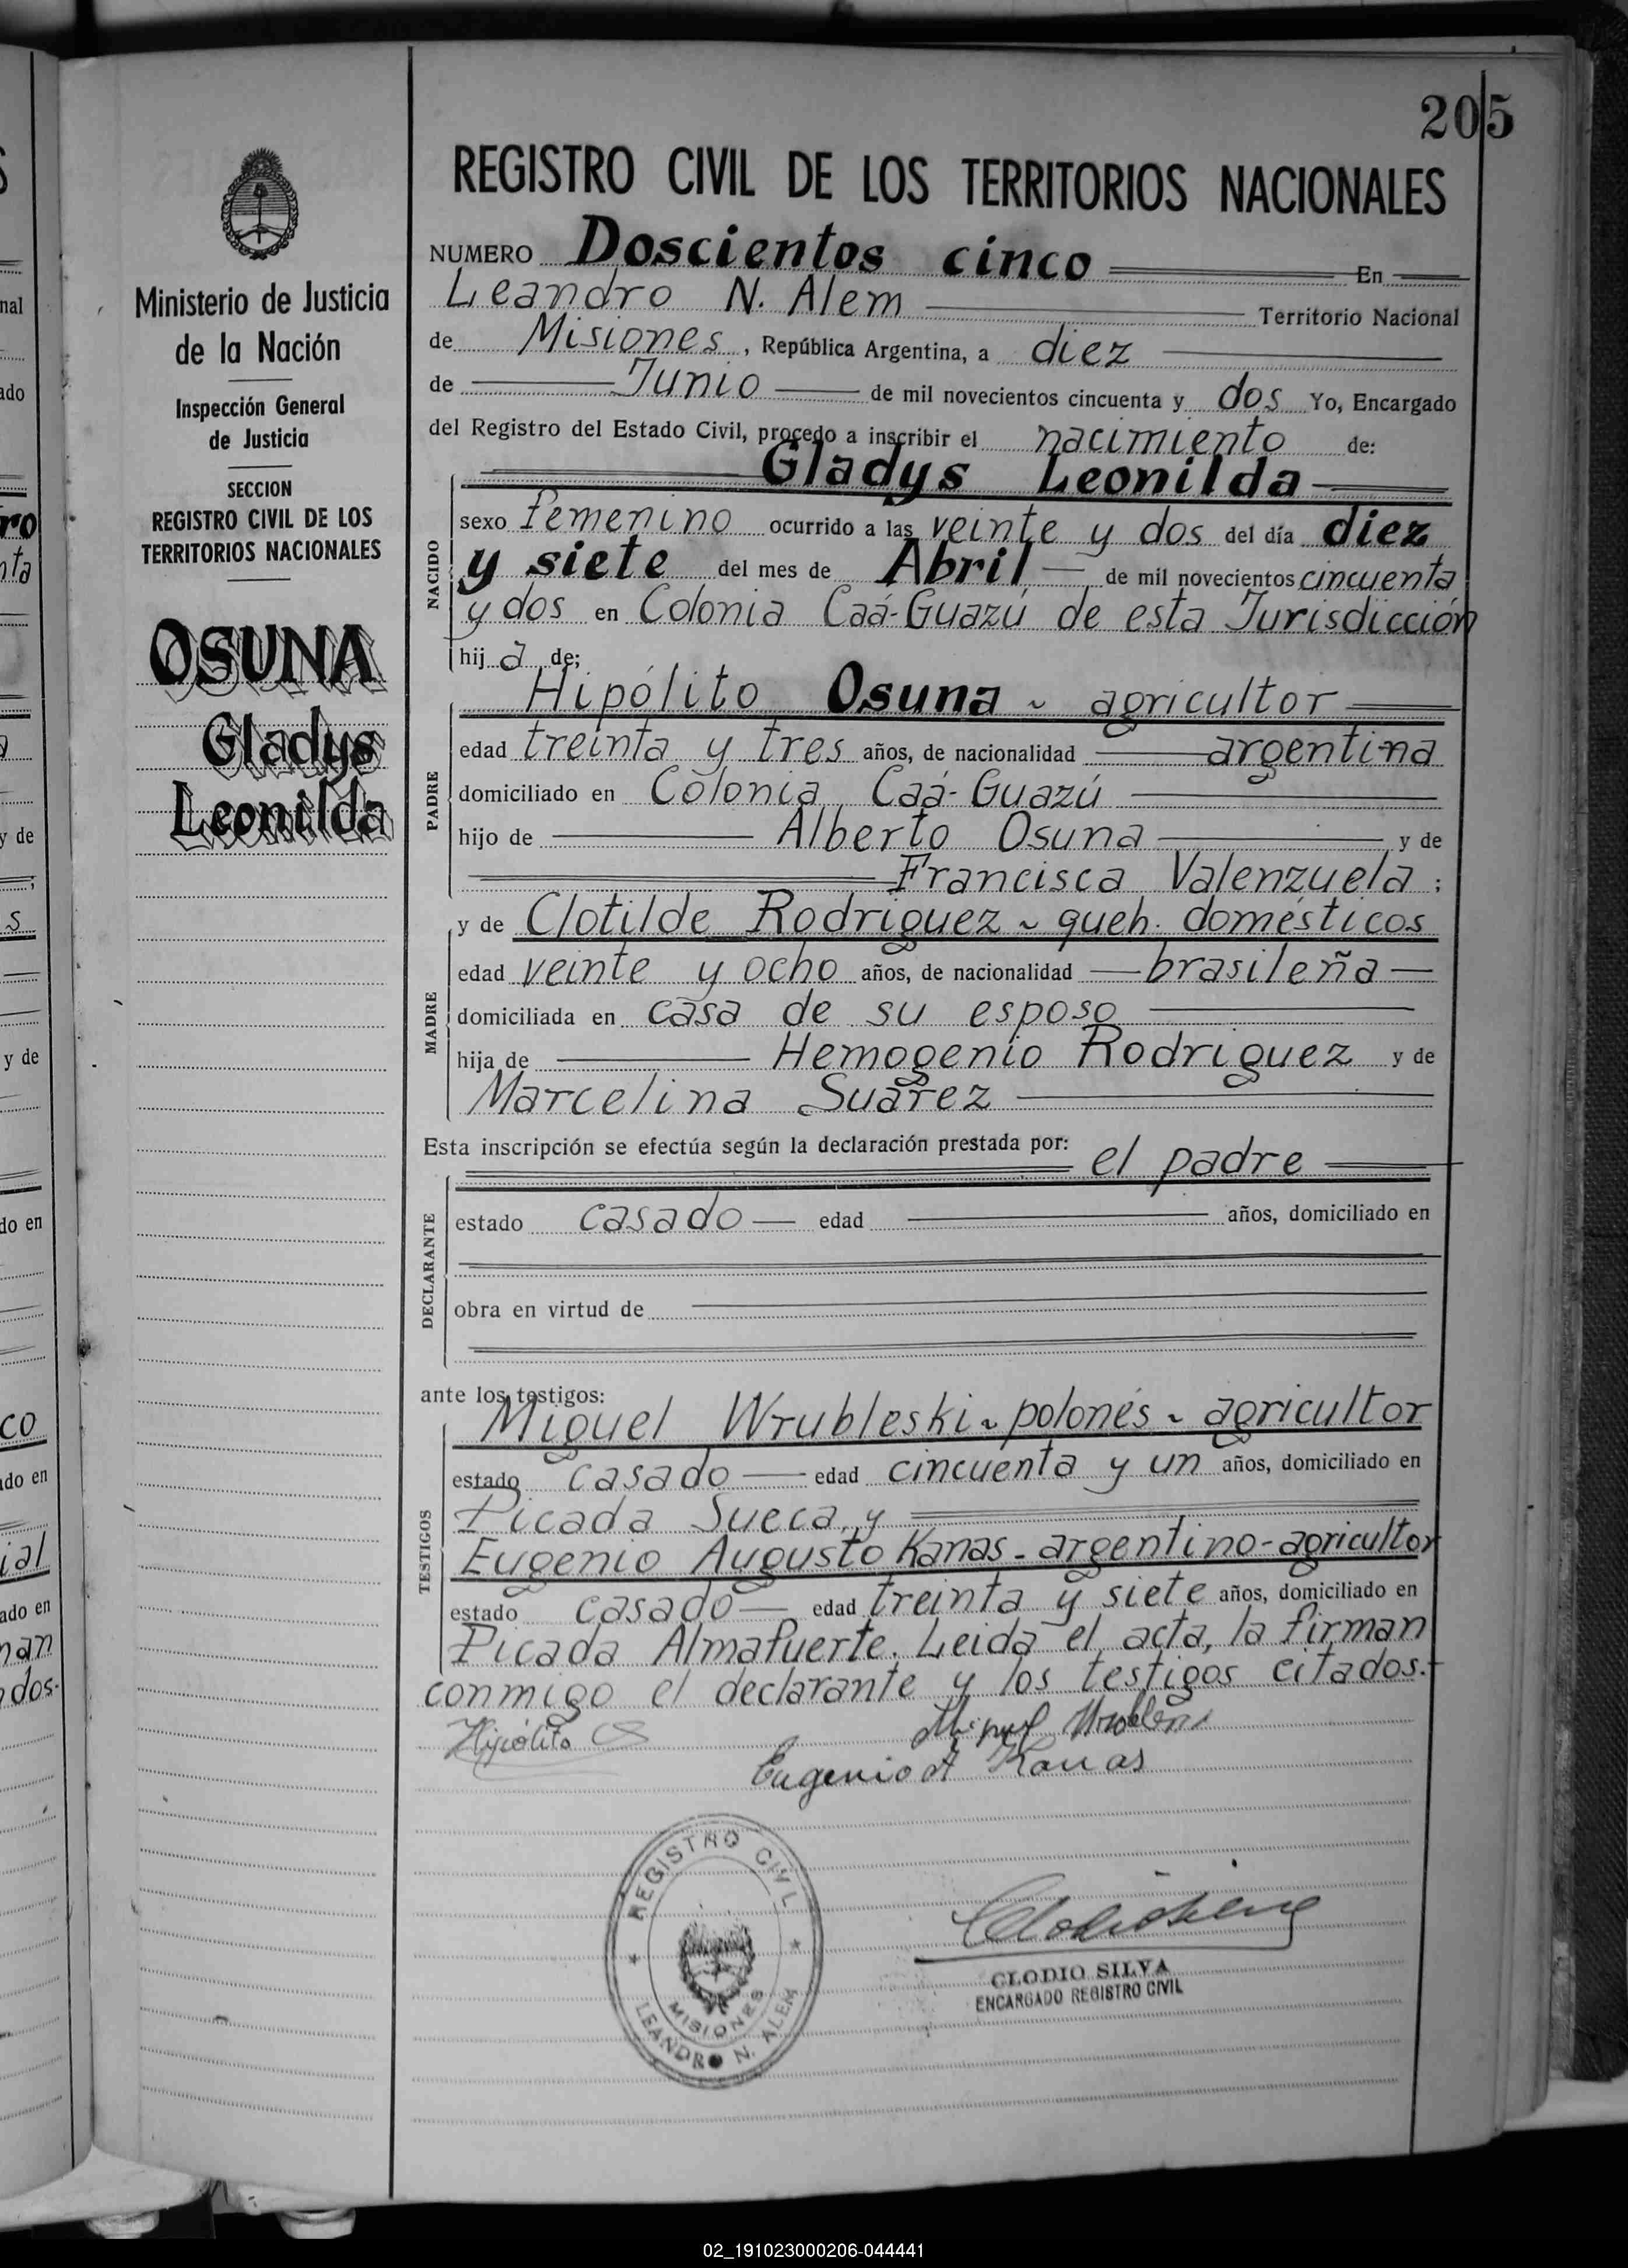 205
REGISTRO CIVIL DE LOS TERRITORIOS NACIONALES
Ministerio de Justicia
de la Nación
Inspección General
de Justicia
SECCION
REGISTRO CIVIL DE LOS
TERRITORIOS NACIONALES
OSUNA
Gladys
Leonilda
NUMERO Doscientos cinco En
Leandro N. Alem Territorio Nacional
de Misiones, República Argentina, a diez
de Junio de mil novecientos cincuenta y dos Yo, Encargado
del Registro del Estado Civil, procedo a inscribir el nacimiento de:
NACIDO
Gladys Leonilda
sexo femenino ocurrido a las veinte y dos del día diez
y siete del mes de Abril de mil novecientos cincuenta
y dos en Colonia Caá-Guazú de esta Jurisdicción
hija de;
PADRE
Hipólito Osuna ~ agricultor
edad treinta y tres años, de nacionalidad argentina
domiciliado en Colonia Caá-Guazú
hijo de Alberto Osuna y de
Francisca Valenzuela ;
MADRE
y de Clotilde Rodriguez ~ queh. domésticos
edad veinte y ocho años, de nacionalidad brasileña
domiciliada en casa de su esposo
hija de Hemogenio Rodriguez y de
Marcelina Suárez
Esta inscripción se efectúa según la declaración prestada por: el padre
DECLARANTE
estado casado edad años, domiciliado en
obra en virtud de
ante los testigos:
TESTIGOS
Miguel Wrubleski ~ polonés ~ agricultor
estado casado edad cincuenta y un años, domiciliado en
Picada Sueca, y
Eugenio Augusto Kanas - argentino - agricultor
estado casado edad treinta y siete años, domiciliado en
Picada Almafuerte. Leida el acta, la firman
conmigo el declarante y los testigos citados.-
Hipólito
Eugenio A Kanas
REGISTRO CIVIL
MISIONES
LEANDRO N. ALEM
CLODIO SILVA
ENCARGADO REGISTRO CIVIL
02_191023000206-044441